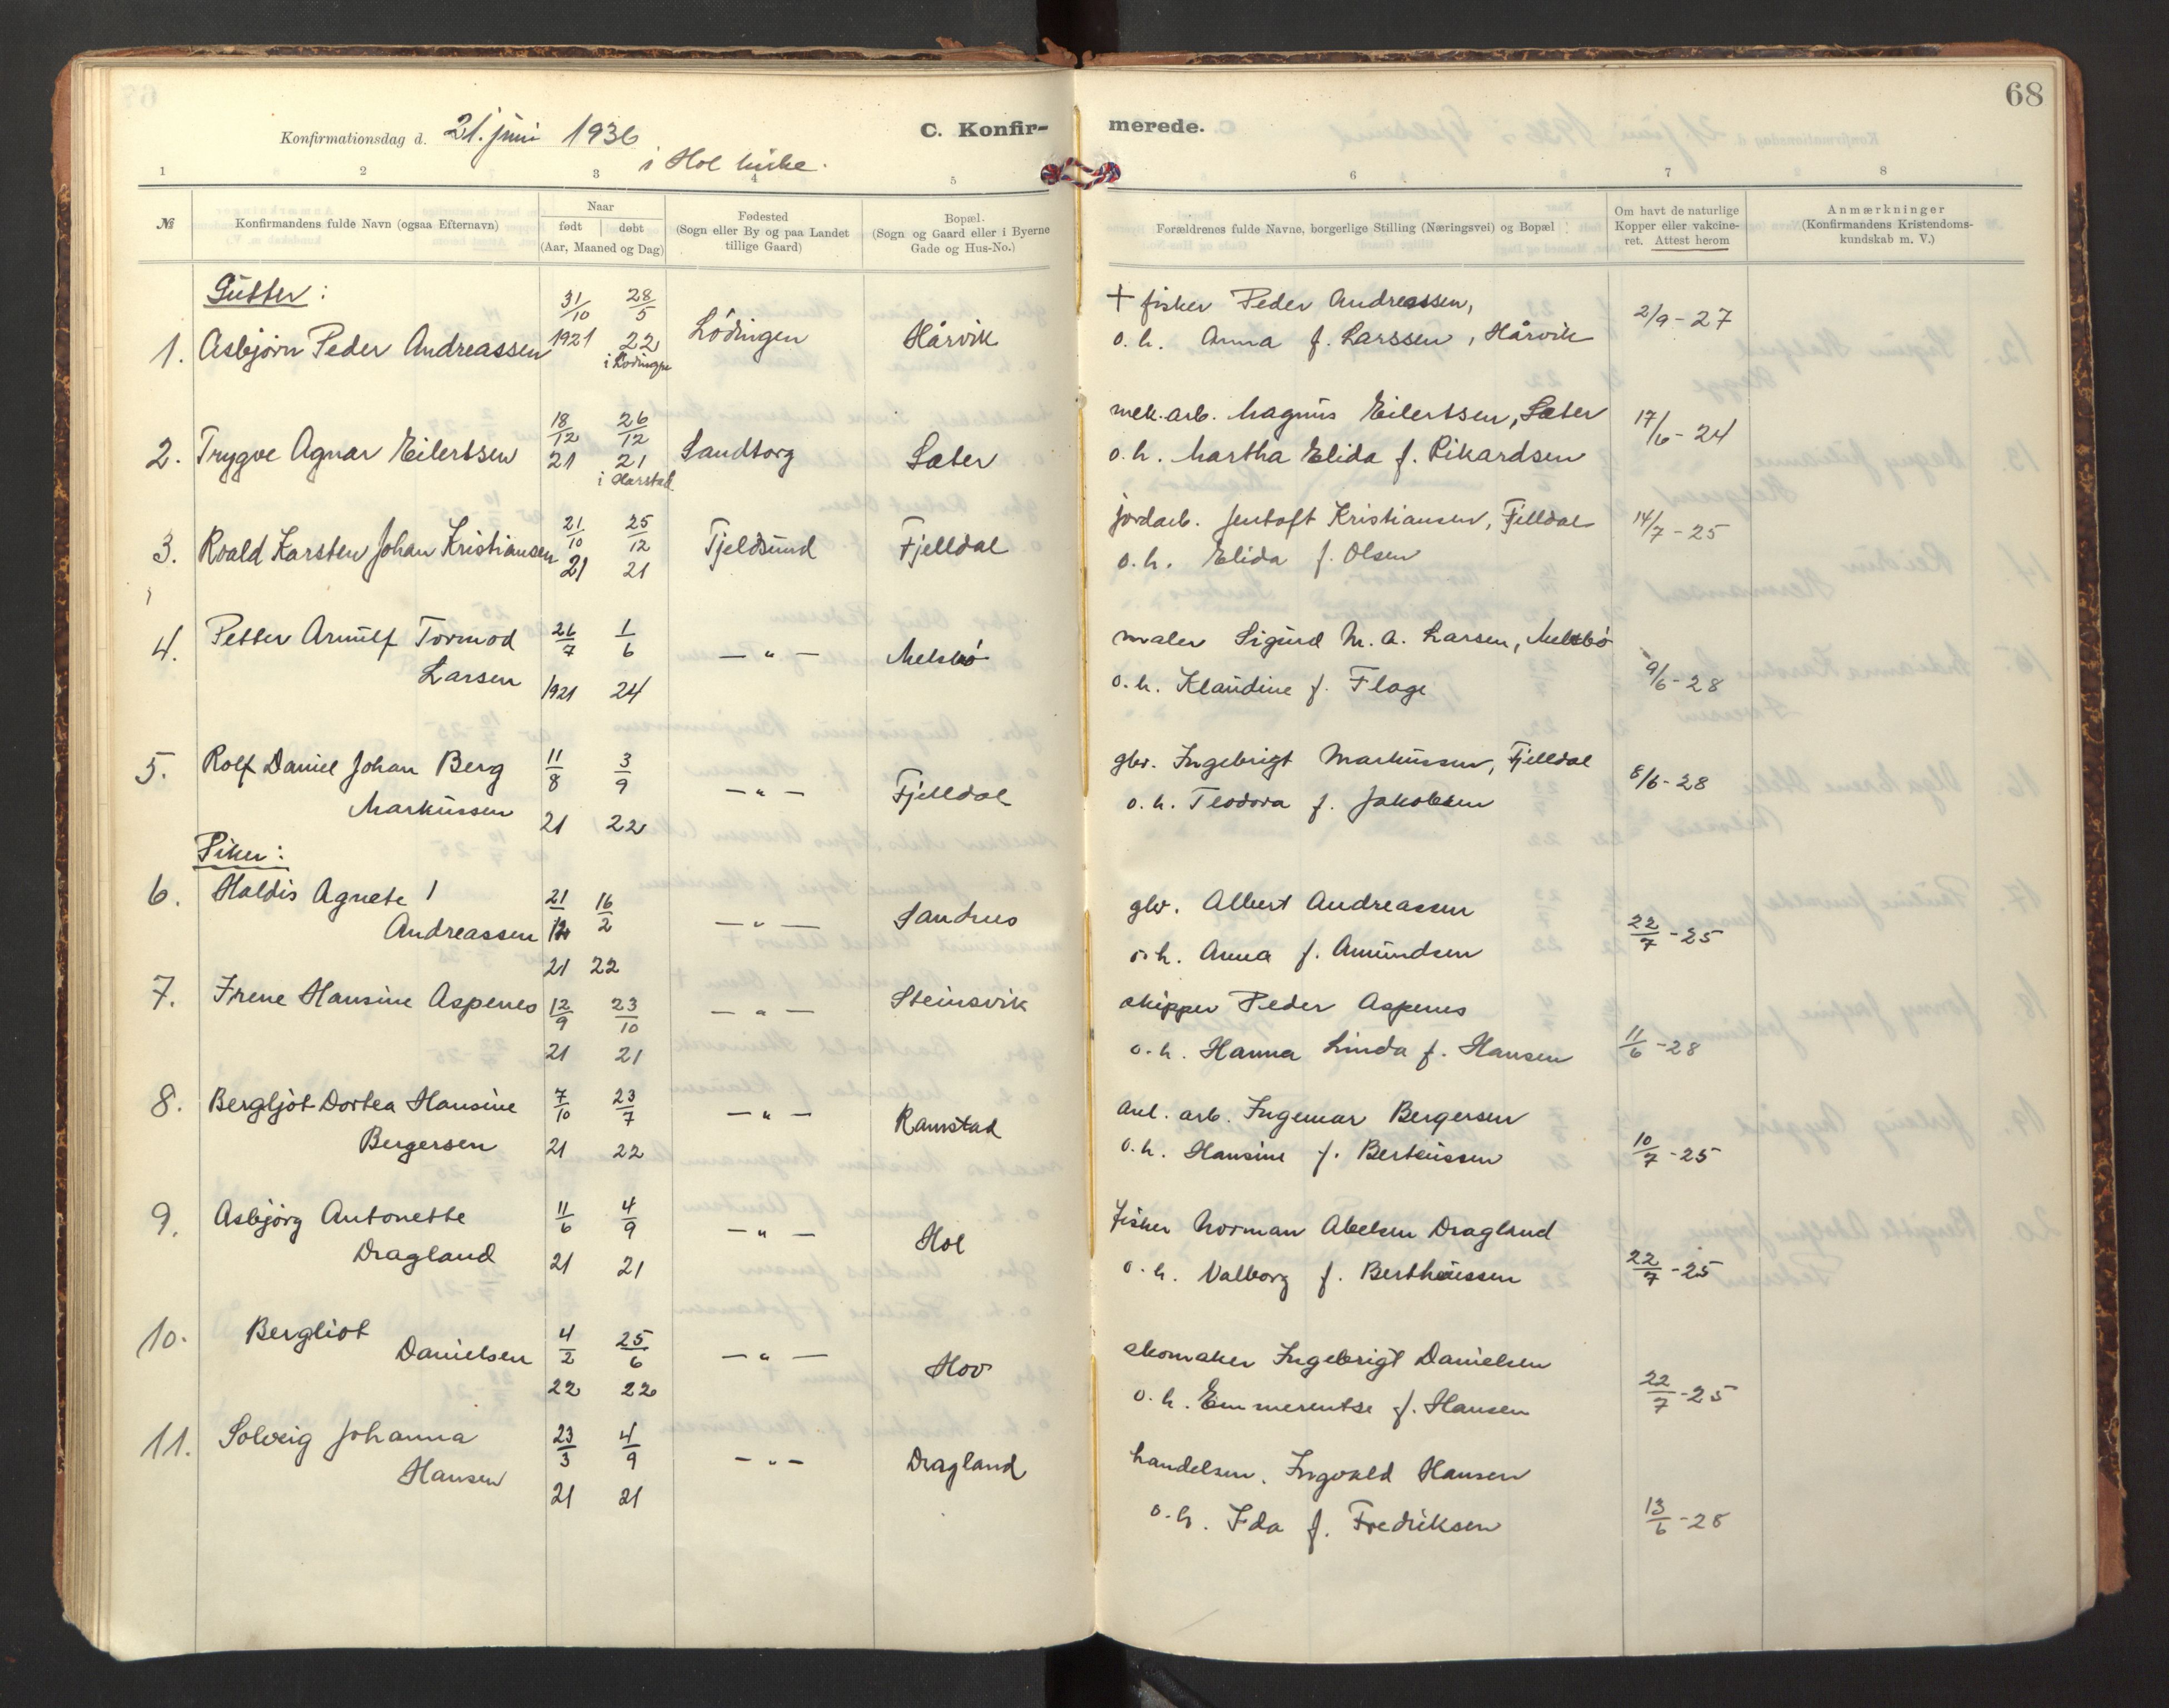 68
Konfirmationsdag d. 21. juni 1936
i Hol kirke.
C. Konfirmerede.
1 2 3 4 5 6 7 8
№
Konfirmandens fulde Navn (ogsaa Efternavn)
Naar
født døbt
(Aar, Maaned og Dag)
Fødested
(Sogn eller By og paa Landet
tillige Gaard)
Bopæl.
(Sogn og Gaard eller i Byerne
Gade og Hus-No.)
Forældrenes fulde Navne, borgerlige Stilling (Næringsvei) og Bopæl
Om havt de naturlige
Kopper eller vakcine-
ret. Attest herom
Anmærkninger
(Konfirmandens Kristendoms-
kundskab m. V.)
Gutter:
1. Asbjørn Peder Andreassen 31/10 1921 28/5 22 i Lødingen Lødingen Hårvik
+ fisker Peder Andreassen,
o. h. Anna f. Larssen, Hårvik 2/9-27
2. Trygve Agnar Eilertsen 18/12 21 26/12 21 i Harstad Sandtorg Sæter
mek. arb. Magnus Eilertsen, Sæter
o. h. Martha Elida f. Rikardsen 17/6-24
3. Roald Karsten Johan Kristiansen 21/10 21 25/12 21 Tjeldsund Fjelldal
jordarb. Jentoft Kristiansen, Fjelldal
o. h. Elida f. Olsen 14/7-25
4. Petter Arnulf Tormod
Larsen 26/7 1921 1/6 24 — " — Melsbø
maler Sigurd M. A. Larsen, Melsbø
o. h. Klaudine f. Flage 9/6-28
5. Rolf Daniel Johan Berg
Markussen 11/8 21 3/9 22 — " — Fjelldal
gbr. Ingebrigt Markussen, Fjelldal
o. h. Teodora f. Jakobsen 8/6-28
Piker:
6. Haldis Agnete
Andreassen 21/12 21 16/2 22 — " — Sandnes
gbr. Albert Andreassen
o. h. Anna f. Amundsen 22/7-25
7. Irene Hansine Aspenes 12/9 21 23/10 21 — " — Steinsvik
skipper Peder Aspenes
o. h. Hanna Linda f. Hansen 11/6-28
8. Bergljot Dortea Hansine
Bergersen 7/10 21 23/7 22 — " — Ramstad
anl. arb. Ingemar Bergersen
o. h. Hansine f. Berteussen 10/7-25
9. Asbjørg Antonette
Dragland 11/6 21 4/9 21 — " — Hol
fisker Norman Abelsen Dragland
o. h. Valborg f. Bertheussen 22/7-25
10. Bergliot
Danielsen 4/2 22 25/6 22 — " — Hov
skomaker Ingebrigt Danielsen
o. h. Emmerentse f. Hansen 22/7-25
11. Solveig Johanna
Hansen 23/3 21 4/9 21 — " — Dragland
handelsm. Ingvald Hansen
o. h. Ida f. Fredriksen 13/6-28